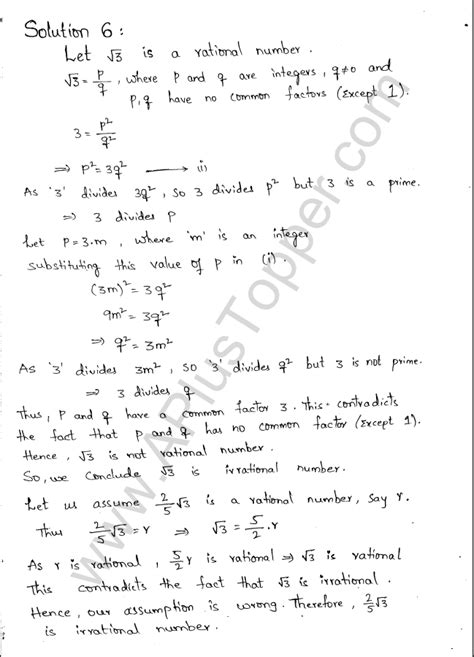 Solution 6 :
Let √3 is a rational number.
√3 = p/q, where p and q are integers, q≠0 and
p,q have no common factors (Except 1).
3 = p²/q²
⇒ p² = 3q² ⟶ (i)
As '3' divides 3q², so 3 divides p² but 3 is a prime.
⇒ 3 divides p
Let p = 3.m, where 'm' is an integer
substituting this value of p in (i).
(3m)² = 3q²
9m² = 3q²
⇒ q² = 3m²
As '3' divides 3m², so '3' divides q² but 3 is not prime.
⇒ 3 divides q
Thus, p and q have a common factor 3. This contradicts
the fact that p and q has no common factor (Except 1).
Hence, √3 is not rational number.
So, we conclude √3 is irrational number.
Let us assume 2/5 √3 is a rational number, say r.
Thus 2/5 √3 = r ⇒ √3 = 5/2 .r
As r is rational, 5/2 r is rational ⇒ √3 is rational
This contradicts the fact that √3 is irrational.
Hence, our assumption is wrong. Therefore, 2/5 √3
is irrational number.
www.APlusTopper.com